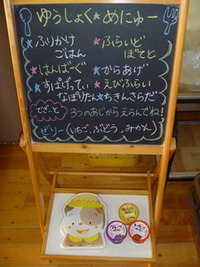 ゆうしょく★めにゅー
★ふりかけごはん
★ふらいどぽてと
★はんばーぐ
★からあげ
★すぱげってぃなぽりたん
★えびふらい
★ちきんさらだ
でざーと
3つのあじからえらんでね!
ゼリー(いちご、ぶどう、みかん)